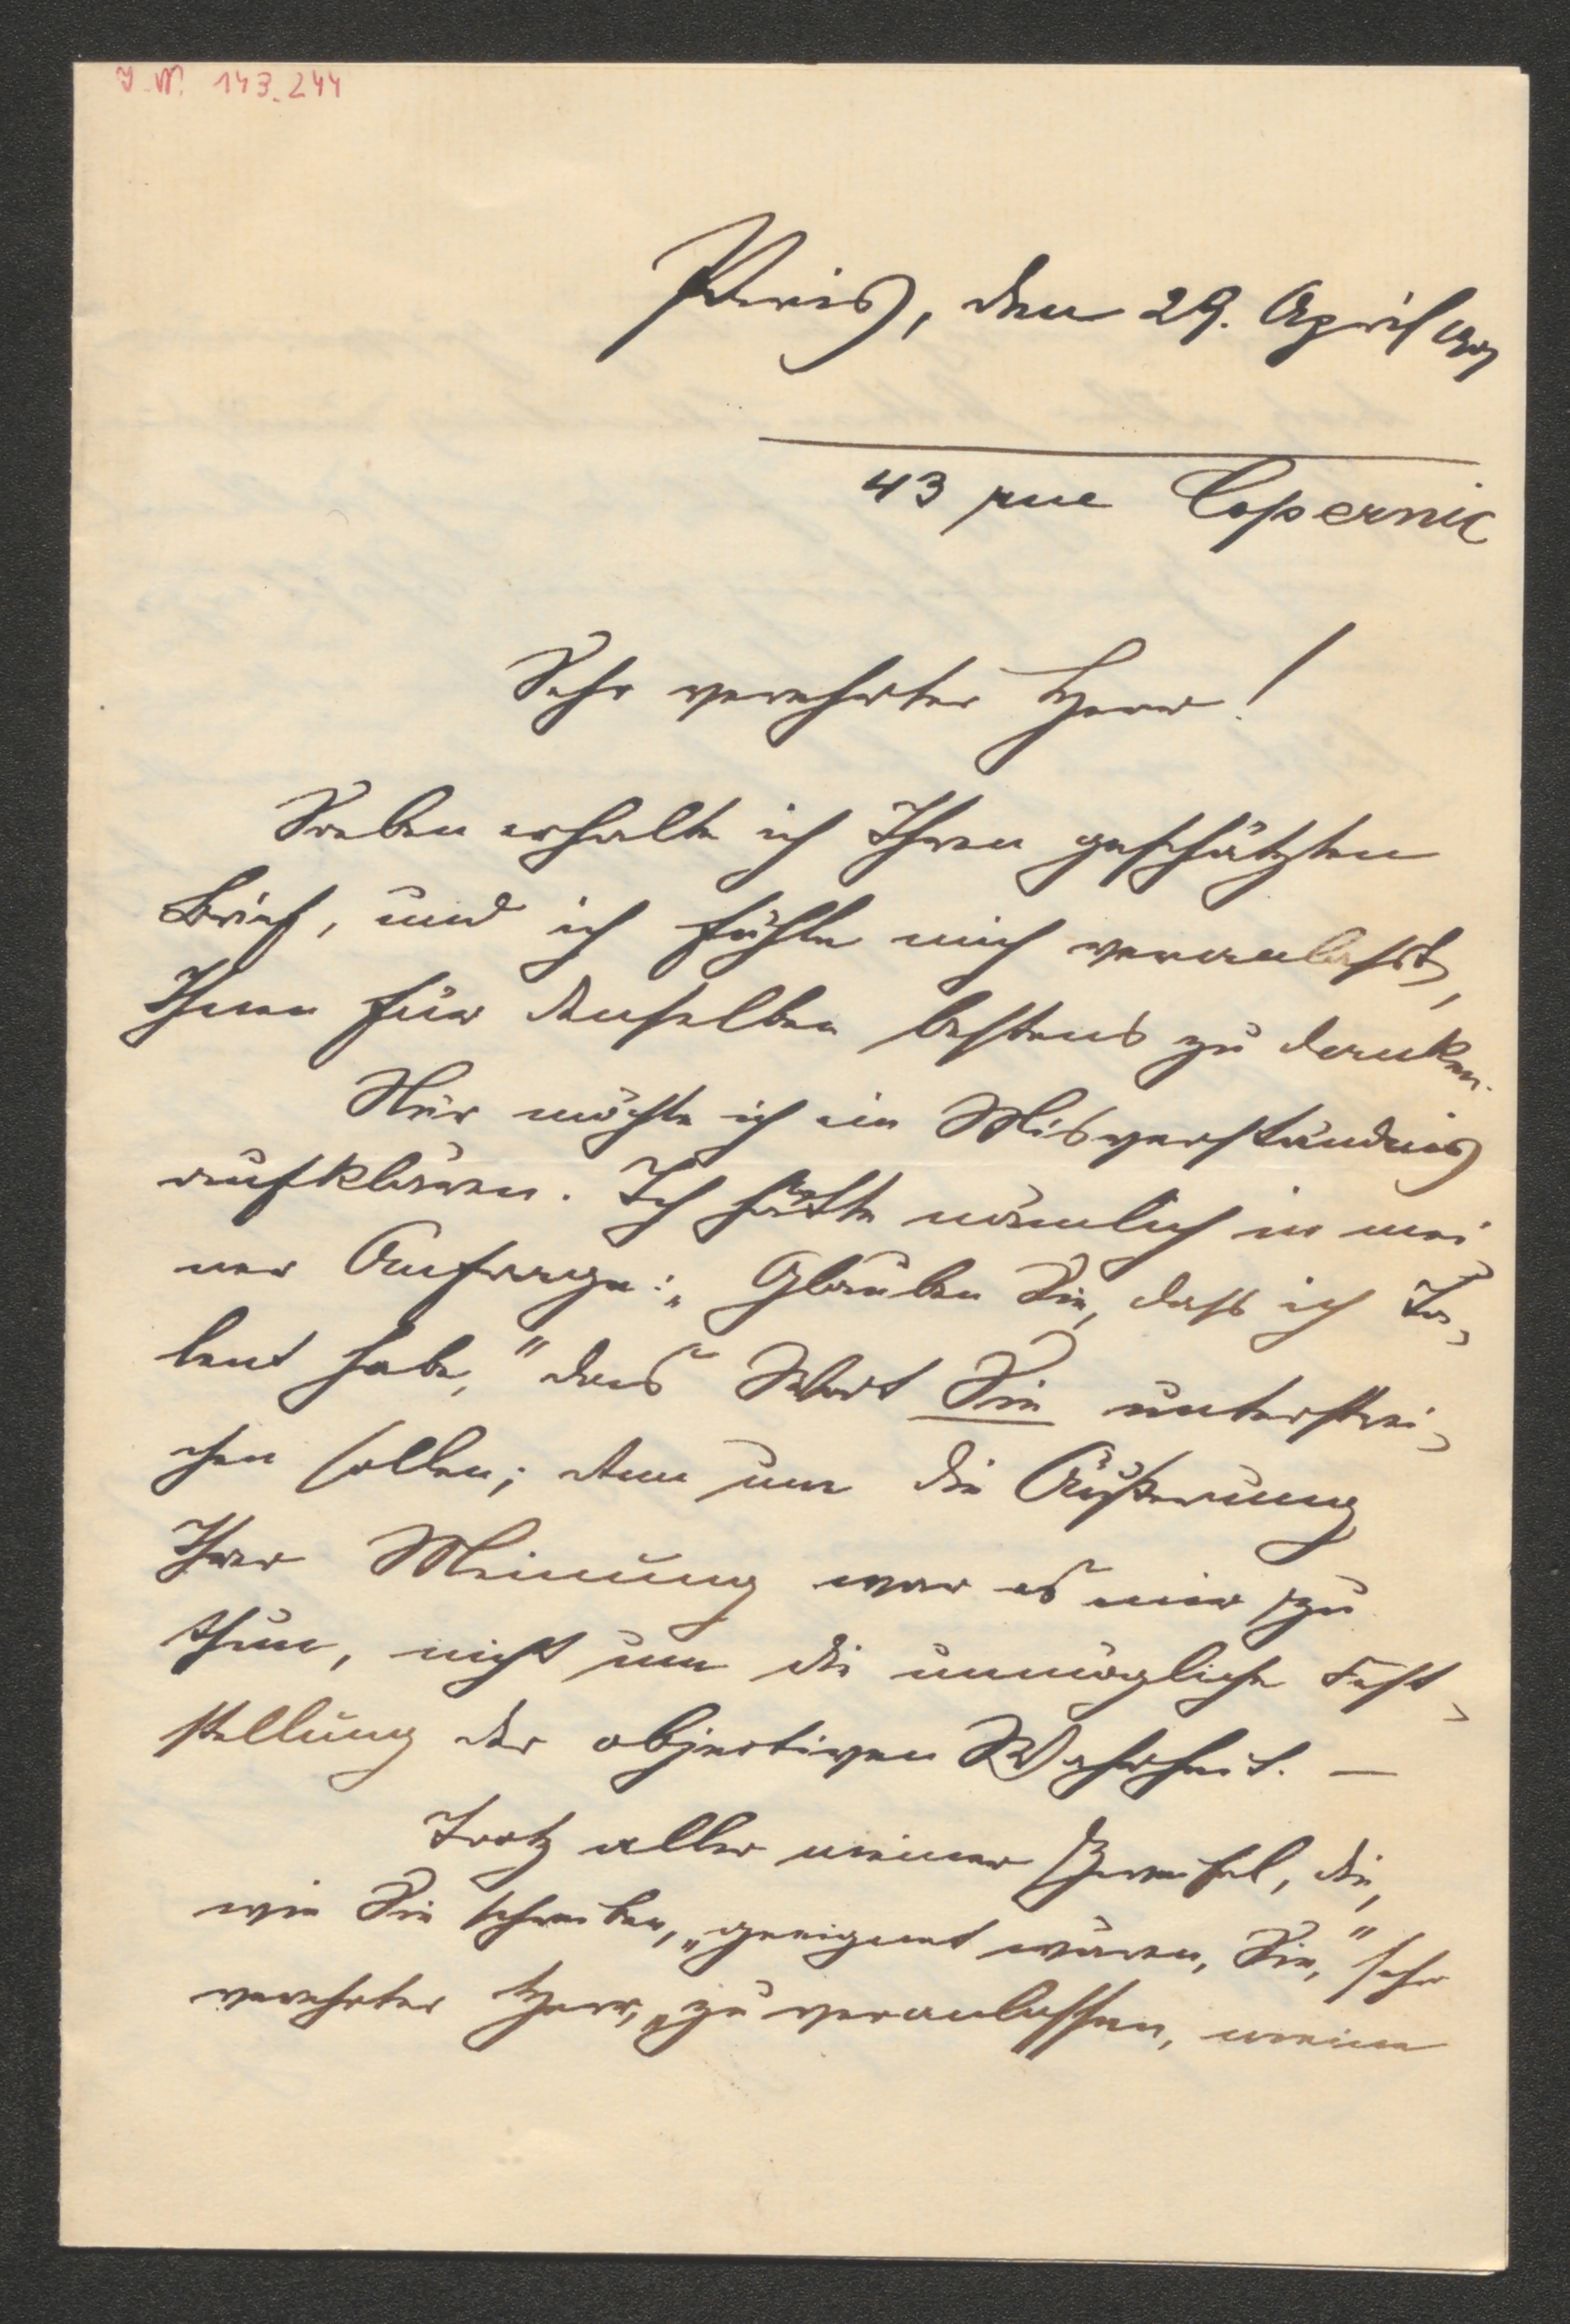 J. N. 143.244
Paris, den 29. April 1907
43 rue Copernic
Sehr verehrter Herr!
Soeben erhalte ich Ihren geschätzten
Brief, und ich fühle mich veranlasst,
Ihnen für denselben bestens zu danken.
Nur möchte ich ein Misverständnis
aufklären. Ich hätte nämlich in mei-
ner Anfrage: „Glauben Sie, dass ich Ta-
lent habe," das Wort Sie unterstrei-
chen sollen; denn um die Äußerung
Ihrer Meinung war es mir zu
thun, nicht um die unmögliche Fest-
stellung der objectiven Wahrheit. —
Trotz aller meiner Zweifel, die,
wie Sie schreiben, „geeignet wären, Sie," sehr
verehrter Herr, „zu veranlassen, meine